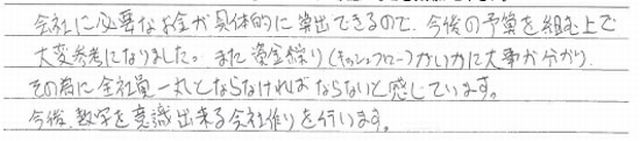 会社に必要なお金が具体的に算出できるので、今後の予算を組む上で
大変参考になりました。また資金繰り(キャッシュフロー)がいかに大事か分かり、
その為に全社員一丸とならなければならないと感じています。
今後、数字を意識出来る会社作りを行います。